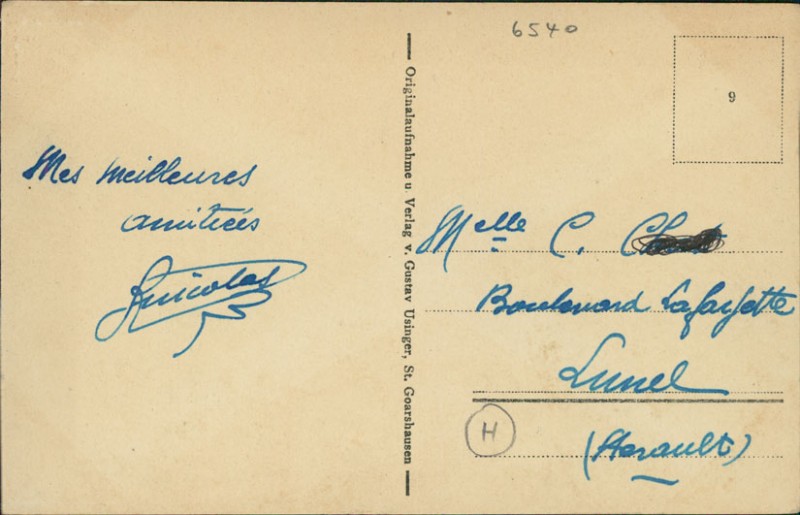 6540
9
Mes meilleures
amitiés
Originalaufnahme u. Verlag v. Gustav Usinger, St. Goarshausen
Melle C.
Boulevard Lafayette
Lunel
H
(Herault)